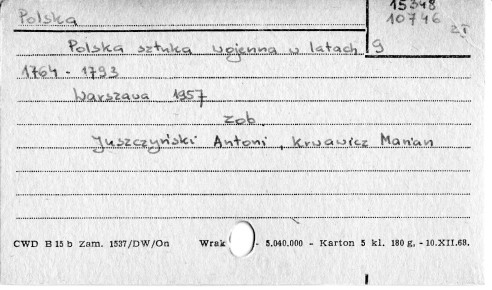 15348
Polska
10746
zł
Polska sztuka wojenna w latach 9
1764 - 1793
Warszawa 1957
zob
Juszczyński Antoni, Krwawicz Marian
CWD B 15 b Zam. 1537/DW/On Wrak - 5.040.000 - Karton 5 kl. 180 g. - 10.XII.68.